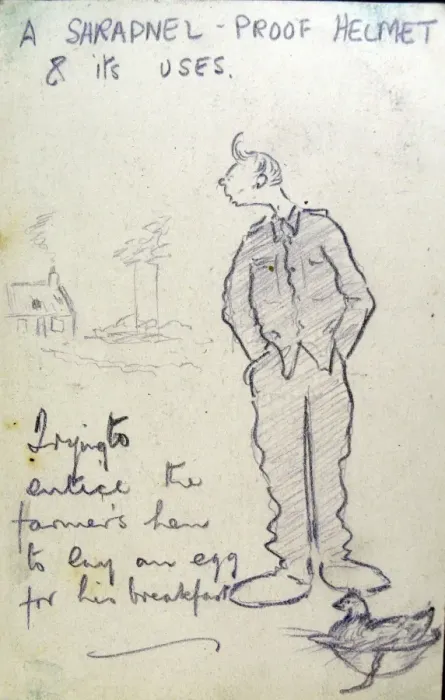 A SHRAPNEL-PROOF HELMET
& its USES.
Trying to
entice the
farmer's hen
to lay an egg
for his breakfast